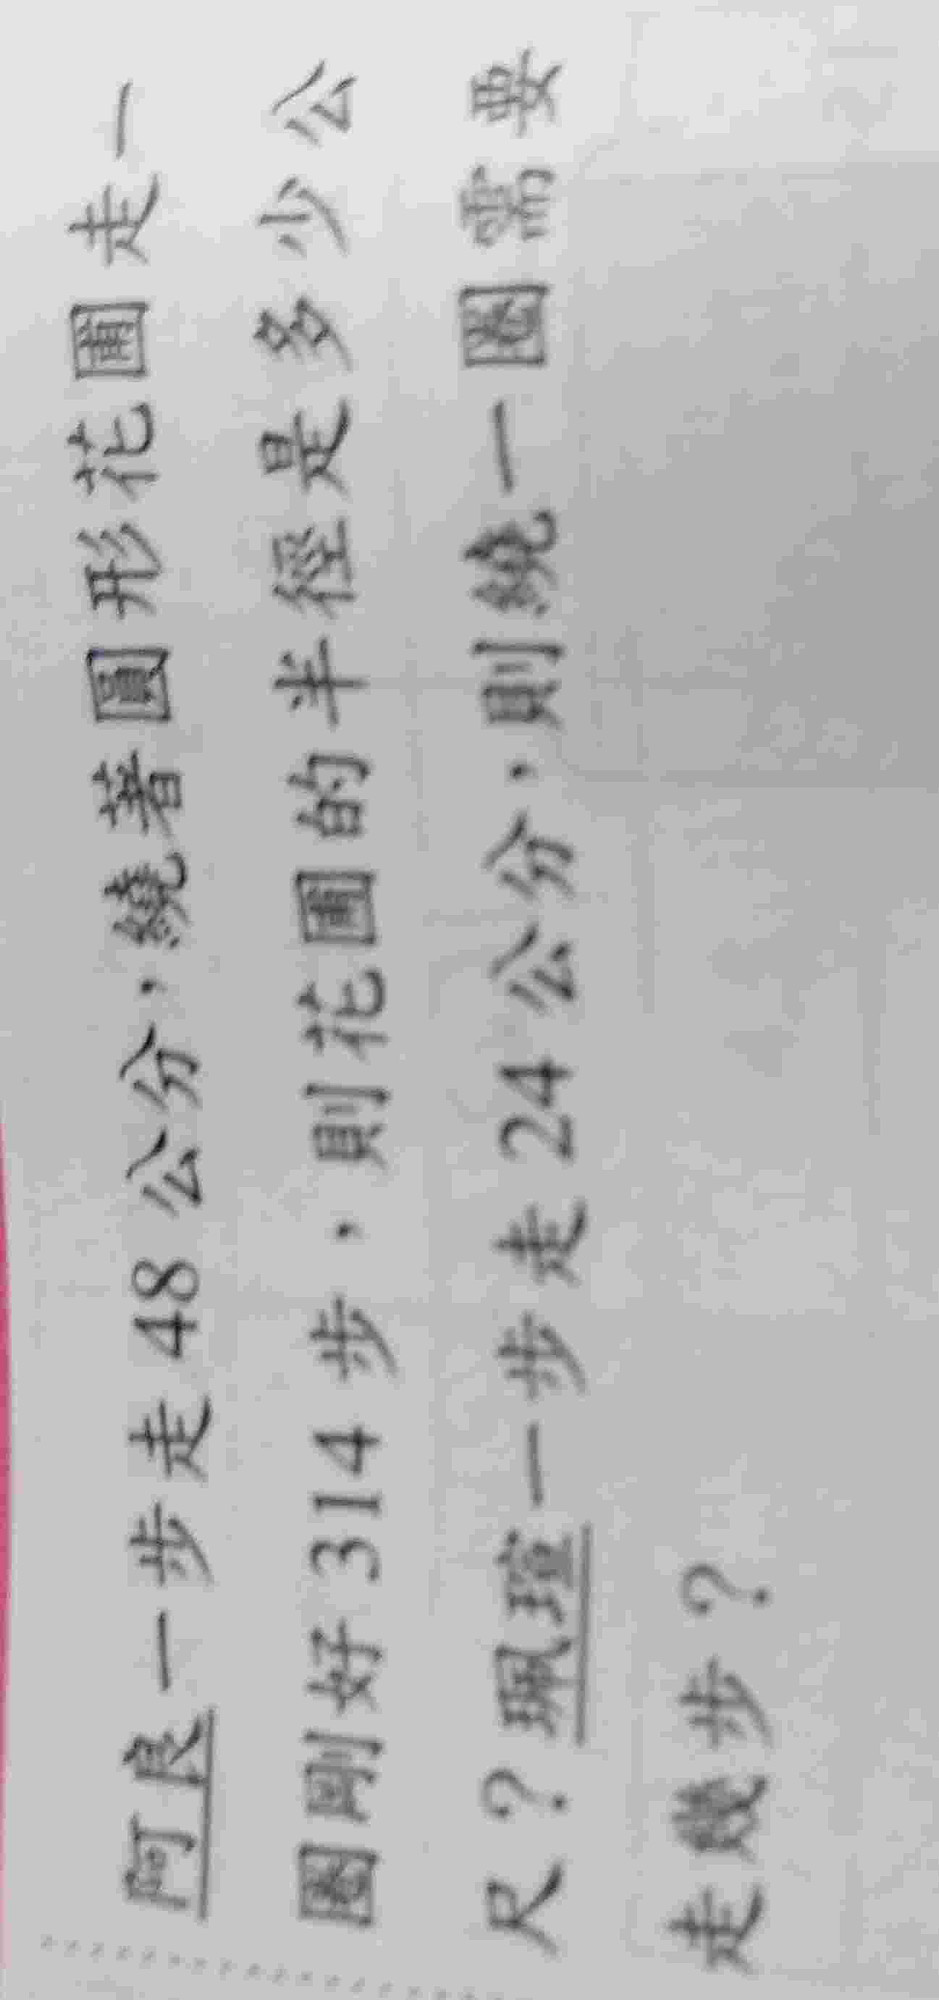 阿良一步走48公分，繞著圓形花圃走一
圈剛好314步，則花圃的半徑是多少公
尺？珮瑄一步走24公分，則繞一圈需要
走幾步？